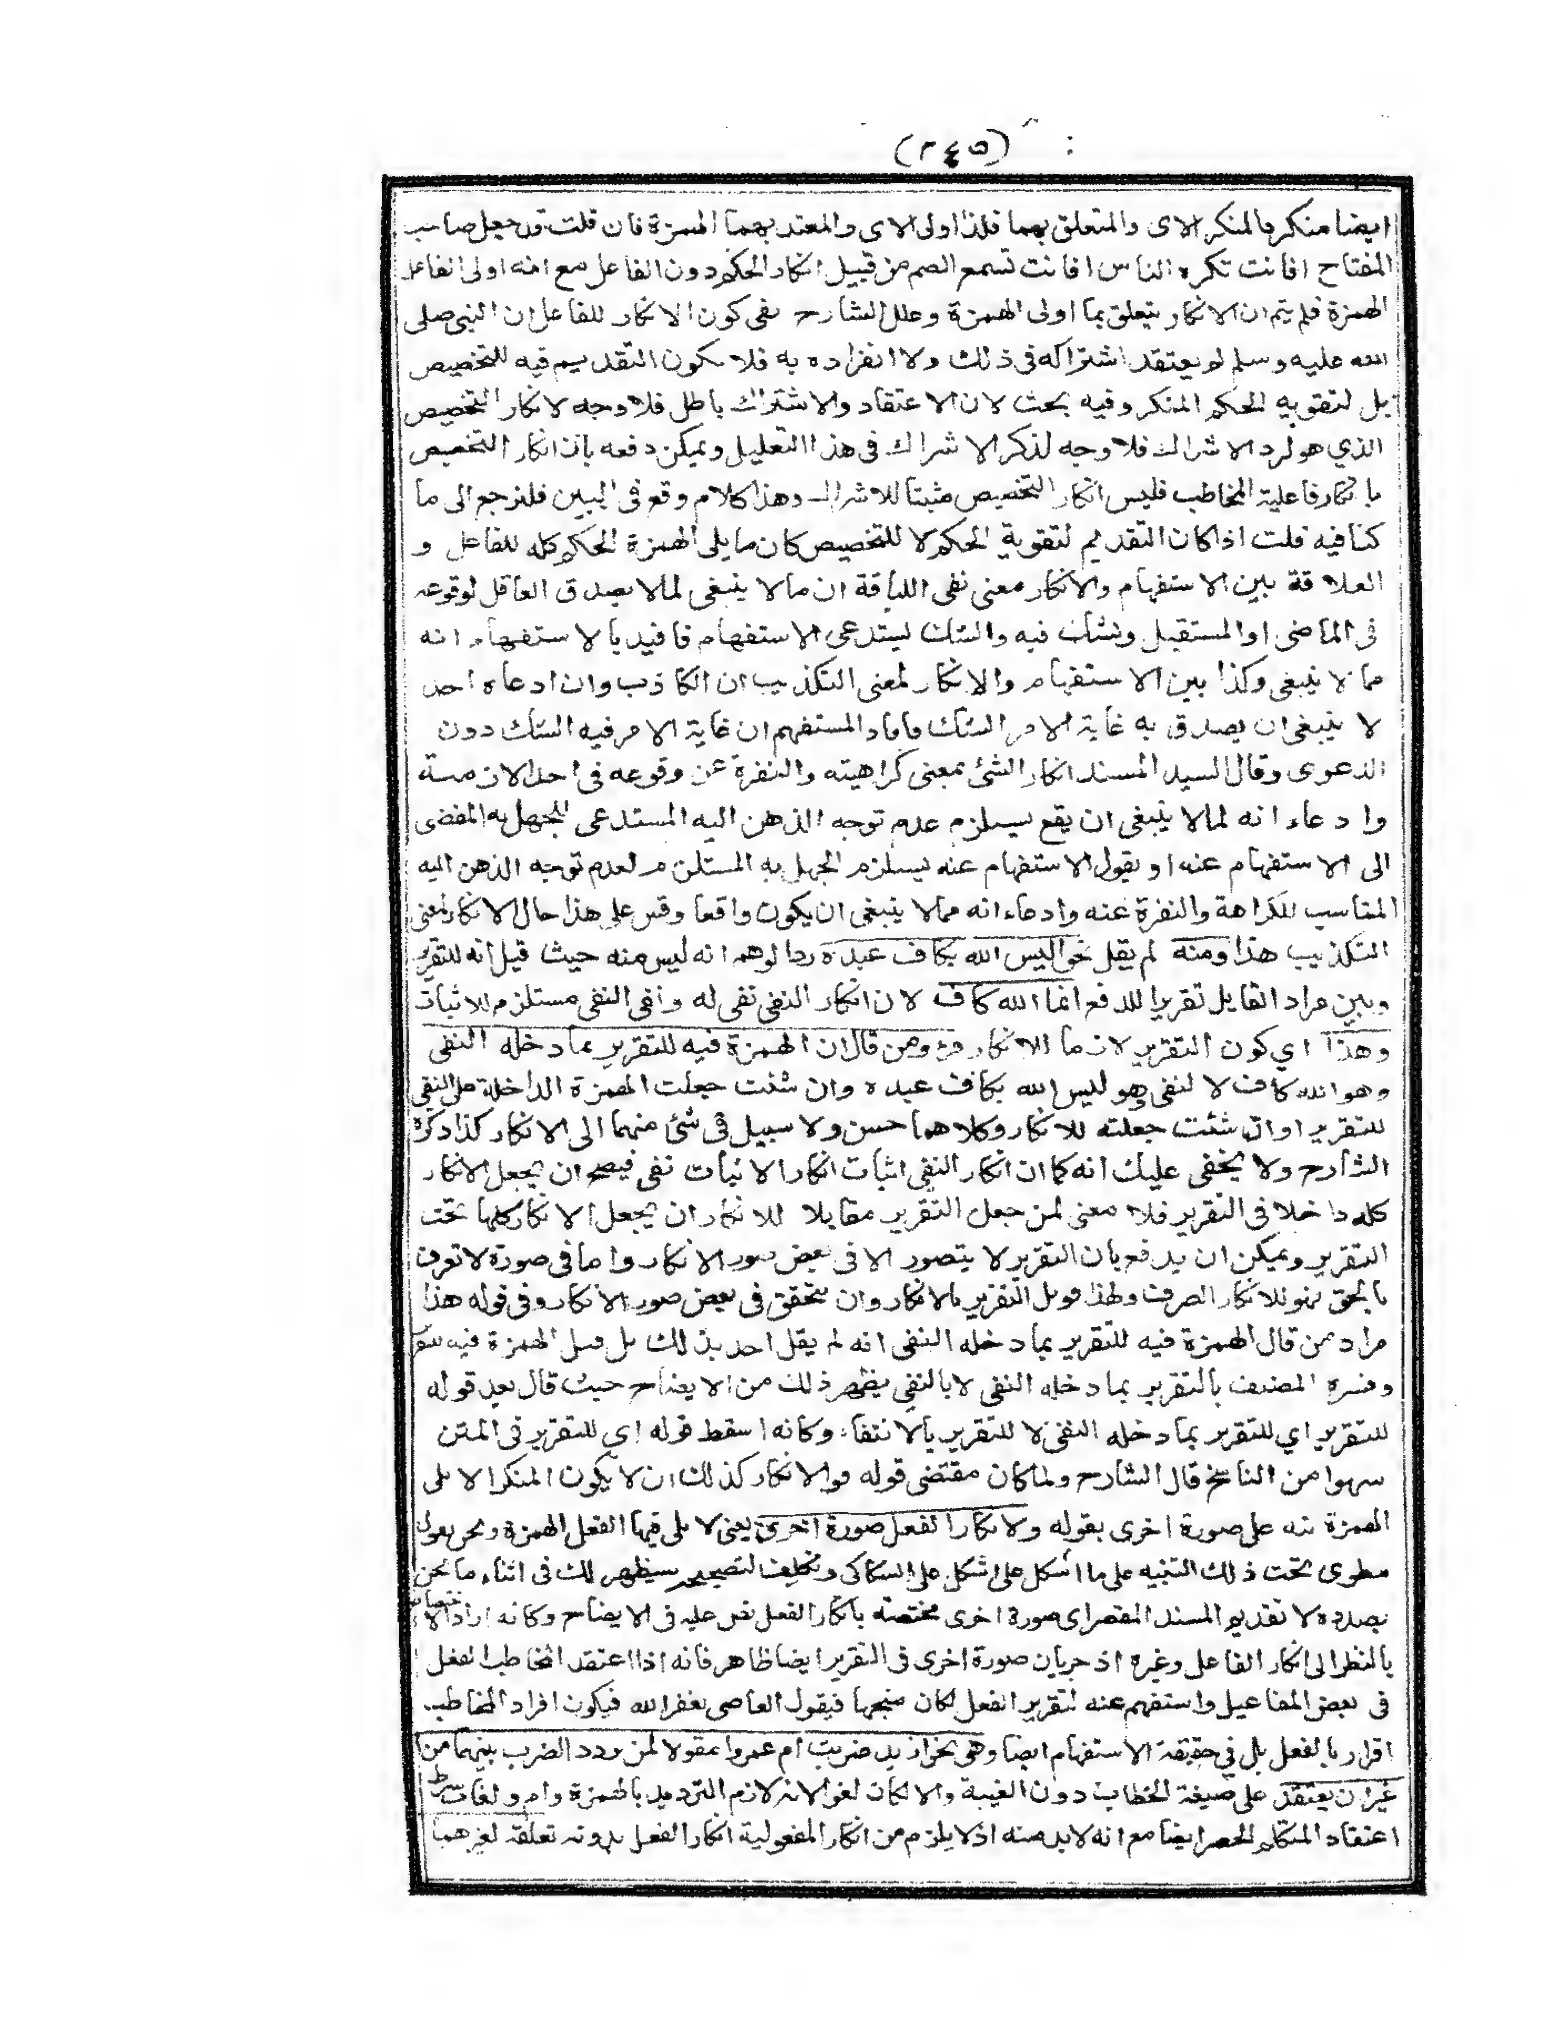 (٢٤٥)
ايضا منكر فالمنكر الاى والمتعلق بهما فلذا اولى الاى والمعتد بهما الهمزة فان قلت قد جعل صاحب
المفتاح افانت تكره الناس افانت تسمع الصم من قبيل انكار الحكم دون الفاعل مع انه اولى الفاعل
الهمزة فلم يتم ان الانكار يتعلق بما اولى الهمزة وعلل الشارح نفى كون الانكار للفاعل ان النبى صلى
الله عليه وسلم لم يعتقد اشتراكه فى ذلك ولا انفراده به فلا يكون التقديم فيه للتخصيص
بل لتقويه الحكم المنكر وفيه بحث لان الاعتقاد والاشتراك باطل فلا وجه لانكار التخصيص
الذي هو لرد الاشراك فلا وجه لذكر الاشراك فى هذا التعليل ويمكن دفعه بان انكار التخصيص
بانكار فاعلية المخاطب فليس انكار التخصيص مثبتا للاشراك وهذا كلام وقع فى البين فلنرجع الى ما
كنا فيه قلت اذا كان التقديم لتقوية الحكم لا للتخصيص كان ما يلى الهمزة الحكم كله للفاعل و
العلاقة بين الاستفهام والانكار معنى نفى اللياقة ان ما لا ينبغى لما لا يصدق العاقل لوقوعه
فى الماضى او المستقبل ويشك فيه والشك يستدعى الاستفهام فافيد بالاستفهام انه
مما لا ينبغى وكذا بين الاستفهام والانكار لمعنى التكذيب ان الكاذب وان ادعاه احد
لا ينبغى ان يصدق به غاية الامر الشك فافاد المستفهم ان غاية الامر فيه الشك دون
الدعوى وقال السيد المسند انكار الشئ بمعنى كراهيته والنفرة عن وقوعه فى احد الازمنة
وادعاء انه لما لا ينبغى ان يقع يستلزم عدم توجه الذهن اليه المستدعى للجهل به المفضى
الى الاستفهام عنه او يقول الاستفهام عنه يستلزم الجهل به المستلزم لعدم توجه الذهن اليه
المناسب للكراهة والنفرة عنه وادعاء انه مما لا ينبغى ان يكون واقعا وقس على هذا حال الانكار لمعنى
التكذيب هذا ومنه لم يقل نحو اليس الله بكاف عبده ردا لوهم انه ليس منه حيث قيل انه للتقرير
وبين مراد القايل تقريرا للدفع انما الله كاف لان انكار النفى نفى له ونفى النفى مستلزم للاثبات
وهذا اي كون التقرير لازما للانكار مراد من قال ان الهمزة فيه للتقرير بما دخله النفى
وهو الله كاف لا لنفى وهو ليس الله بكاف عبده وان شئت جعلت الهمزة الداخلة على النفى
للتقرير او ان شئت جعلته للانكار وكلاهما حسن ولا سبيل فى شئ منهما الى الانكار كذا ذكره
الشارح ولا يخفى عليك انه كما ان انكار النفى اثبات انكار الاثبات نفى فيصح ان يجعل الانكار
كله داخلا فى التقرير فلا معنى لمن جعل التقرير مقابلا للانكار ان يجعل الانكار كلها تحت
التقرير ويمكن ان يدفع بان التقرير لا يتصور الا فى بعض صور الانكار واما فى صورة لا تعرف
بالحق فهو للانكار الصرف ولهذا قوبل التقرير بالانكار وان تحقق فى بعض صور الانكار وفى قوله هذا
مراد من قال الهمزة فيه للتقرير بما دخله النفى انه لم يقل احد بذلك بل قيل الهمزة فيه للتقرير
وفسره المصنف بالتقرير بما دخله النفى لا بالنفى يظهر ذلك من الايضاح حيث قال بعد قوله
للتقرير اي للتقرير بما دخله النفى لا للتقرير بالانتفاء وكانه اسقط قوله اي للتقرير فى المتن
سهوا من الناسخ قال الشارح ولما كان مقتضى قوله والانكار كذلك ان لا يكون المنكر الا يلى
الهمزة نبه على صورة اخرى بقوله ولانكار الفعل صورة اخرى يعنى لا يلى فيها الفعل الهمزة ونحن نقول
مطوى تحت ذلك التنبيه على ما اشكل على اشكل على السكاكى وتكليف لتصحيحه سيظهر لك فى اثناء ما نحن
بصدده لا تقديم المسند المقصر اى صورة اخرى مختصة بانكار الفعل نص عليه فى الايضاح وكانه اراد الا
بالنظر الى انكار الفاعل وغيره اذ جريان صورة اخرى فى التقرير ايضا ظاهر فانه اذا اعتقد المخاطب الفعل
فى بعض المفاعيل واستفهم عنه لتقرير الفعل لكان متجها فيقول العاصى يغفر الله فيكون افراد المخاطب
اقرار بالفعل بل فى حقيقة الاستفهام ايضا وهى نحو ازيد ضربت ام عمروا مقولا لمن ردد الضرب بينهما من
غير ان يعتقد على صيغة الخطاب دون الغيبة والا لكان لغوا لانه لازم الترديد بالهمزة وام ولغات
اعتقاد المتكلم الحصر ايضا مع انه لابد منه اذ لا يلزم من انكار المفعولية انكار الفعل بدونه تعلقه لغيرهما